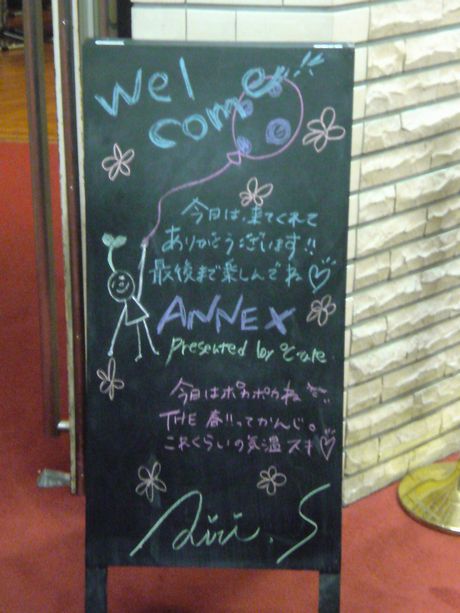 Wel
come!!
今日は、来てくれて
ありがとうございます!!
最後まで楽しんでね♡
ANNEX
Presented by
今日はポカポカね
THE 春!!ってかんじ。
これくらいの気温スキ♡
Airi.S